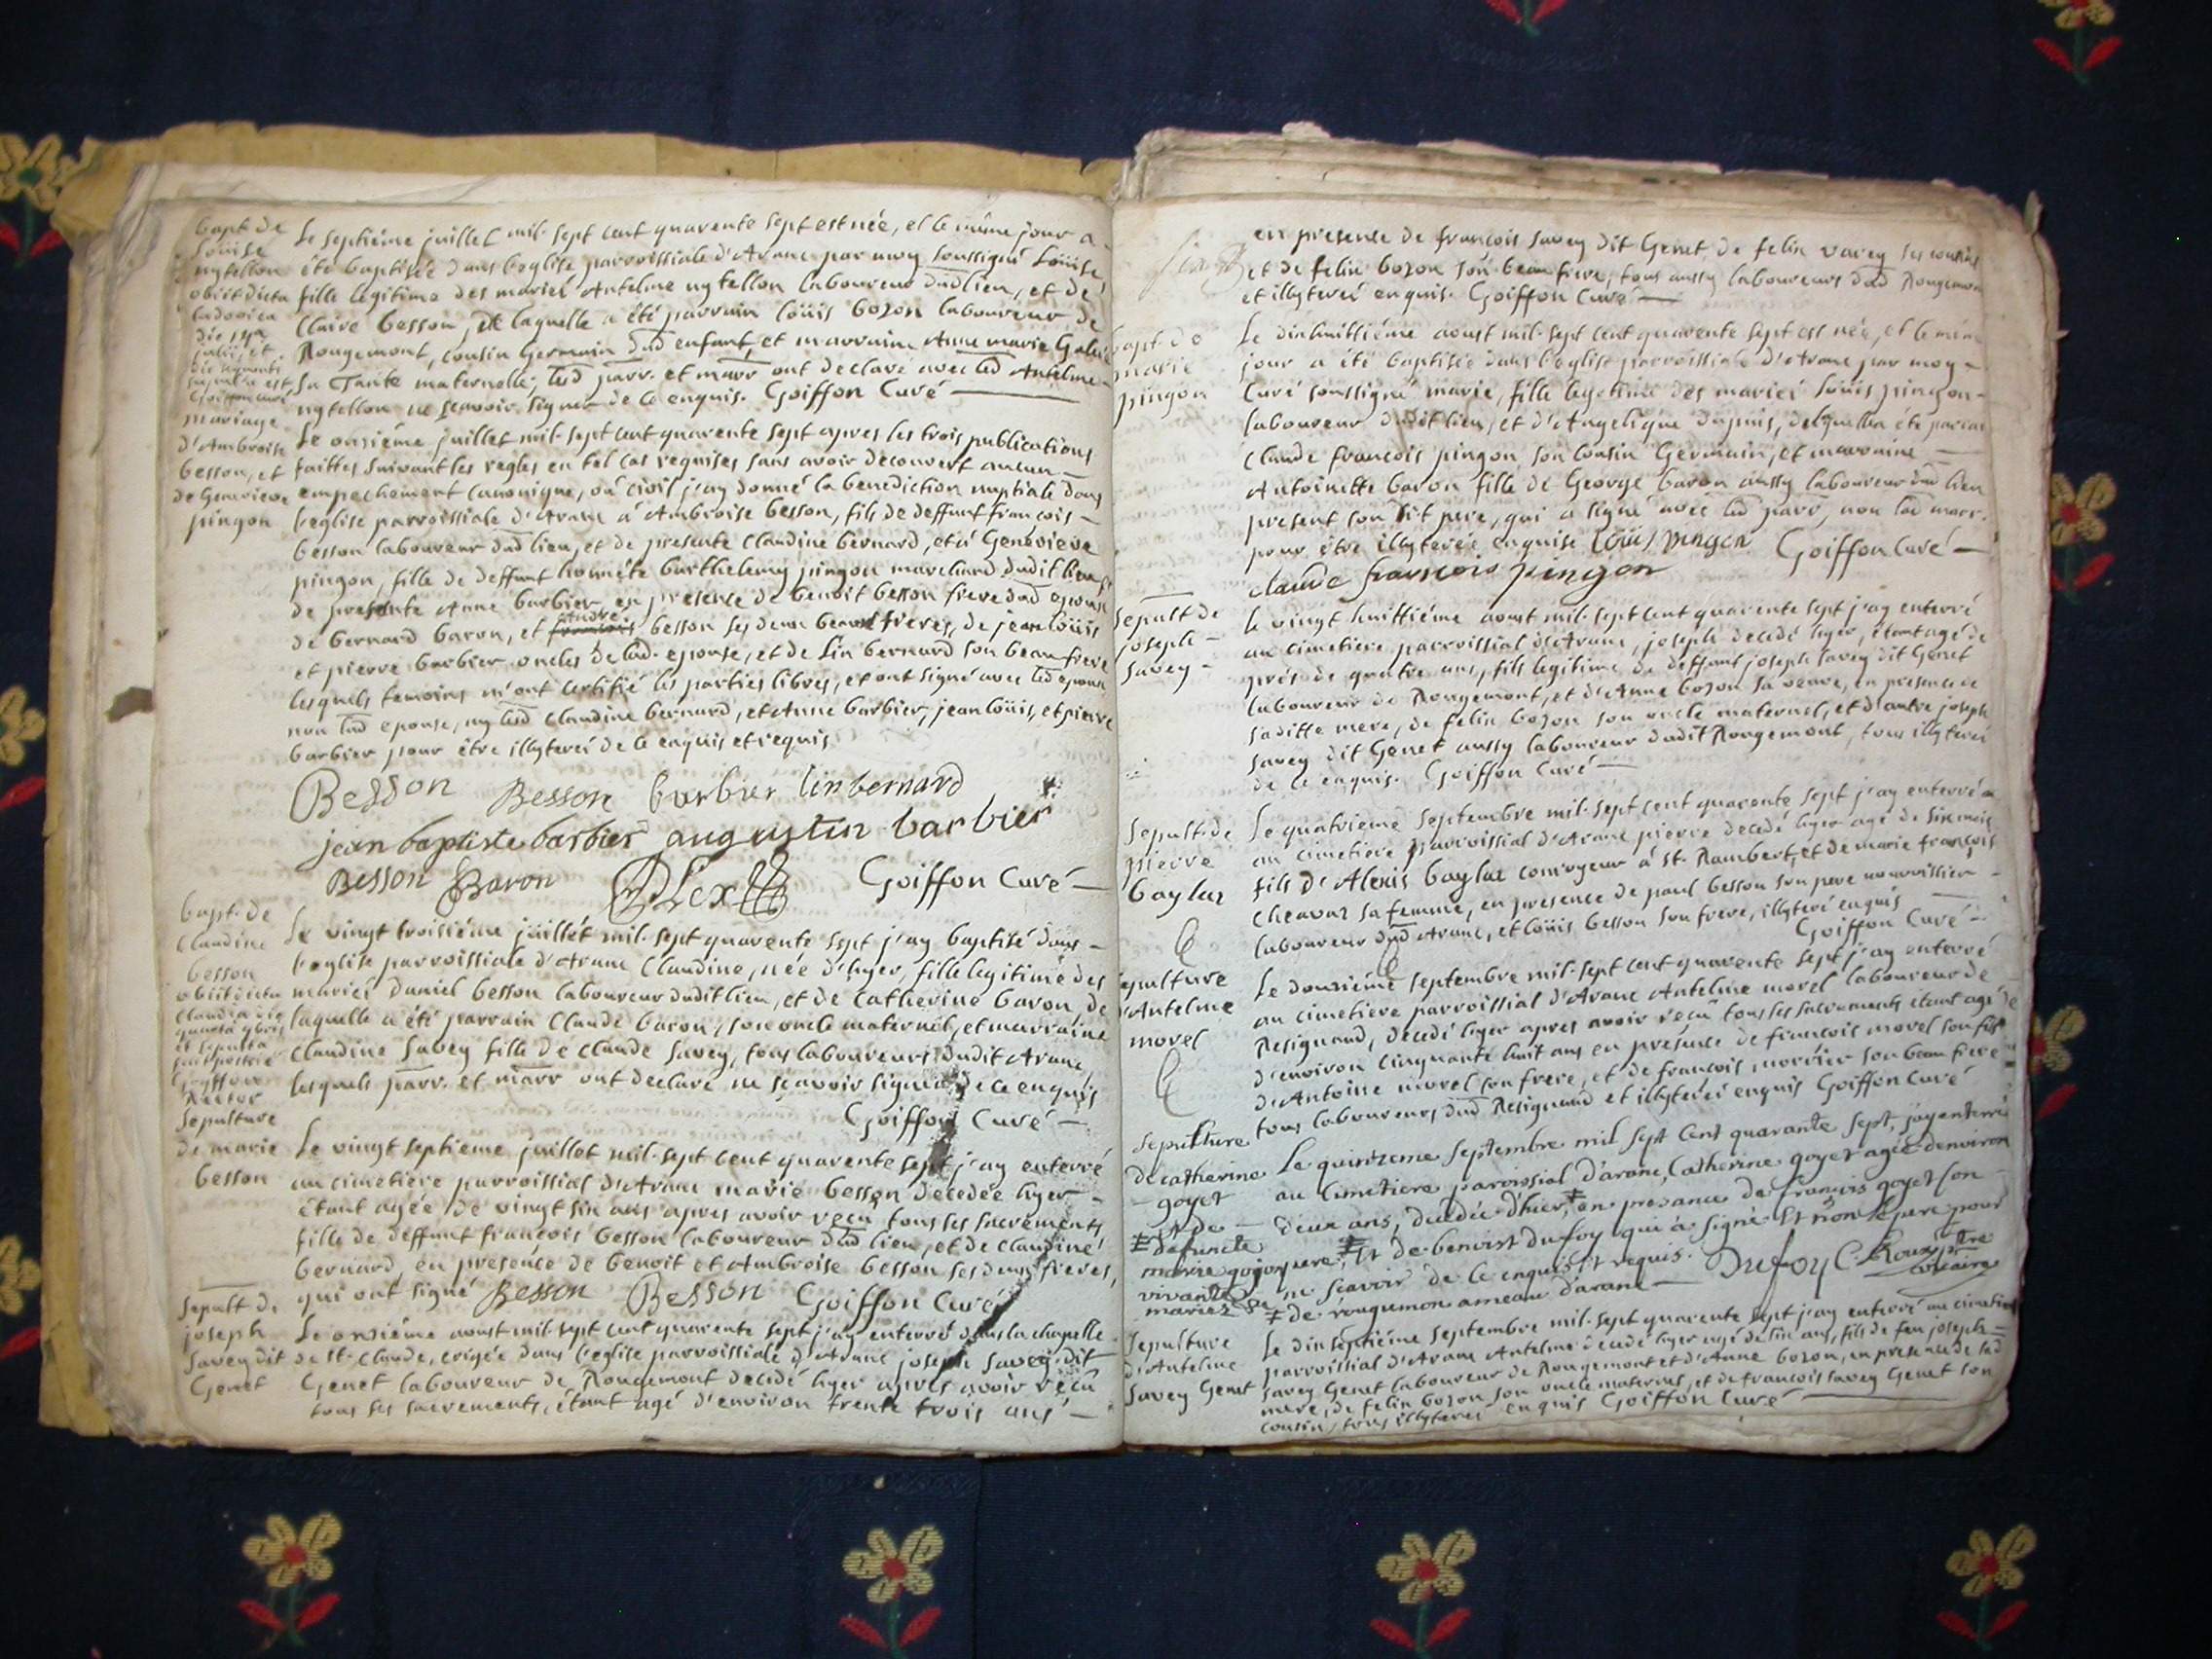 bapt de
Loüise
nytellon
obiit dicta
ludovica
die
julii, et
sepulta est
Goiffon curé
Le septiéme juillet mil-sept cent quarente sept est née, et le même jour a
été baptisée dans l'eglise parroissiale d'Aranc par moy soussigné Loüise
fille legitime des mariéś Antelme nytellon laboureur dud lieu, et de
Claire besson, de laquelle a été parrain loüis bozon laboureur de
Rougemont, cousin Germain dud enfant, et marraine Anne marie
sa Tante maternelle; lesd parr. et marr ont declaré avec led Antelme
nytellon ne sçavoir signer de ce enquis. Goiffon Curé
mariage
d'Ambroise
besson, et
de Genevieve
pingon
Le onziéme juillet mil-sept cent quarente sept apres les trois publications
faittes suivant les regles en tel cas requises sans avoir decouvert aucun
empechement canonique, où civil j'ay donné la benediction nuptiale dans
l'eglise parroissiale d'Aranc à Ambroise besson, fils de deffunt francois
besson laboureur dud lieu, et de presente Claudine bernard, et à Genevieve
pingon, fille de deffunt honnête barthelemy pingon marchand dudit lieu, et
de presente Anne barbier, en presence de benoit besson frere dud epoux
de bernard baron, et francois andré besson ses deux beaux freres, de jean loüis
et pierre barbier oncles de lad. epouse, et de Lin bernard son beau frere
lesquels temoins m'ont certifié les parties libres, et ont signé avec led epoux
non lad epouse, ny lesd Claudine bernard, et Anne barbier, jean loüis, et pierre
barbier pour être illyteréś de ce enquis et requis
Besson Besson barbier lin bernard
jean baptiste barbier augustin barbier
Besson Baron Goiffon Curé
bapt. de
Claudine
besson
obiit dicta
Claudia die
quarta
et sepulta
Goiffon
Rector
Le vingt troisiéme juillet mil-sept quarente sept j'ay baptisé dans
l'eglise parroissiale d'Aranc Claudine, née d'hyer, fille legitime des
mariéś Daniel besson laboureur dudit lieu, et de Catherine baron, de
laquelle a été parrain Claude baron, son oncle maternel, et marraine
Claudine Savey fille de Claude Savey, tous laboureurs dudit Aranc
lesquels parr. et marr ont declaré ne sçavoir signer de ce enquis
Goiffon Curé
Sepulture
de marie
besson
Le vingt septieme juillet mil-sept cent quarente sept j'ay enterré
au cimetiere parroissial d'Aranc marie besson decedée hyer
étant agée de vingt six ans apres avoir reçu tous ses sacrements
fille de deffunt francois besson laboureur dud lieu, et de Claudine
bernard, en presence de benoit et Ambroise besson ses deux freres,
qui ont signé Besson Besson Goiffon Curé
Sepult de
joseph
Savey dit
Genet
Le onziéme aoust mil-sept cent quarente sept j'ay enterré dans la chapelle
de St. Claude, erigée dans l'eglise parroissiale d'Aranc joseph Savey dit
Genet laboureur de Rougemont decedé hyer apres avoir reçu
tous ses sacrements, étant agé d'environ trente trois ans
en presence de francois Savey dit Genet, de felix Savey ses cousins
et de felix bozon son beau frere, tous aussy laboureurs dud Rougemont
et illyteréś enquis. Goiffon Curé
bapt de
marie
pingon
Le dixhuittiéme aoust mil-sept cent quarente sept est née, et le même
jour a été baptisée dans l'eglise parroissiale d'Aranc par moy
Curé soussigné marie, fille legitime des mariéś loüis pingon
laboureur dudit lieu, et d'Angelique dupuis, de laquelle a été parrain
Claude francois pingon son cousin Germain, et marraine
Antoinette baron fille de George baron aussy laboureur dud lieu
present son dit pere, qui a signé avec led parr, non lad marr.
pour être illyterée enquise Loüis pingon Goiffon Curé
claude francois pingon
Sepult de
joseph
Savey
Le vingt huittiéme aoust mil-sept cent quarente sept j'ay enterré
au cimetiere parroissial d'Aranc, joseph decedé hyer, étant agé de
prés de quatre ans, fils legitime de deffunt joseph Savey dit Genet
laboureur de Rougemont, et d'Anne bozon sa veuve, en presence de
sa ditte mere, de felix bozon son oncle maternel, et d'autre joseph
Savey dit Genet aussy laboureur dudit Rougemont, tous illyteréś
de ce enquis. Goiffon Curé
Sepult. de
pierre
baylar
Le quatrieme Septembre mil-sept cent quarente sept j'ay enterré
au cimetiere parroissial d'Aranc pierre decedé hyer agé de six mois
fils d'Alexis baylar conroyeur à St. Rambert, et de marie françois
cheavar sa femme, en presence de paul besson son pere nourrissier
laboureur dud Aranc, et loüis besson son frere, illyteré enquis
Goiffon Curé
Sepulture
d'Antelme
morel
Le douziéme septembre mil-sept cent quarente sept j'ay enterré
au cimetiere parroissial d'Aranc Antelme morel laboureur de
Resignand, decedé hyer apres avoir reçu tous ses sacrements étant agé
d'environ cinquante huit ans en presence de francois morel son fils
d'Antoine morel son frere, et de francois morrier son beau frere
tous laboureurs dud Resignand et illyteréś enquis Goiffon Curé
Sepulture
de catherine
goyet
Le quinzeme Septembre mil sept cent quarante sept, jay enterré
au cimetiere paroissial d'aranc, Catherine goyet agée denviron
deux ans, decedée d'hier, en presance de françois goyet son
pere, et de benoist Dufoy qui à signé et non le pere pour
ne scavoir de ce enquis et requis. Dufoy C Roux ptre
vicaire
de rougemon ameau d'aranc
et de
defuncte
marie gojon
vivante
mariez
Sepulture
d'Antelme
Savey Genet
Le dixseptiéme Septembre mil-sept quarente sept j'ay enterré au cimetiere
parroissial d'Aranc Antelme decedé hyer agé de six ans, fils de feu joseph
Savey Genet laboureur de Rougemont et d'Anne bozon, en presence de lad
mere, de felix bozon son oncle maternel, et de francois Savey Genet son
cousin, tous illyteréś enquis Goiffon Curé